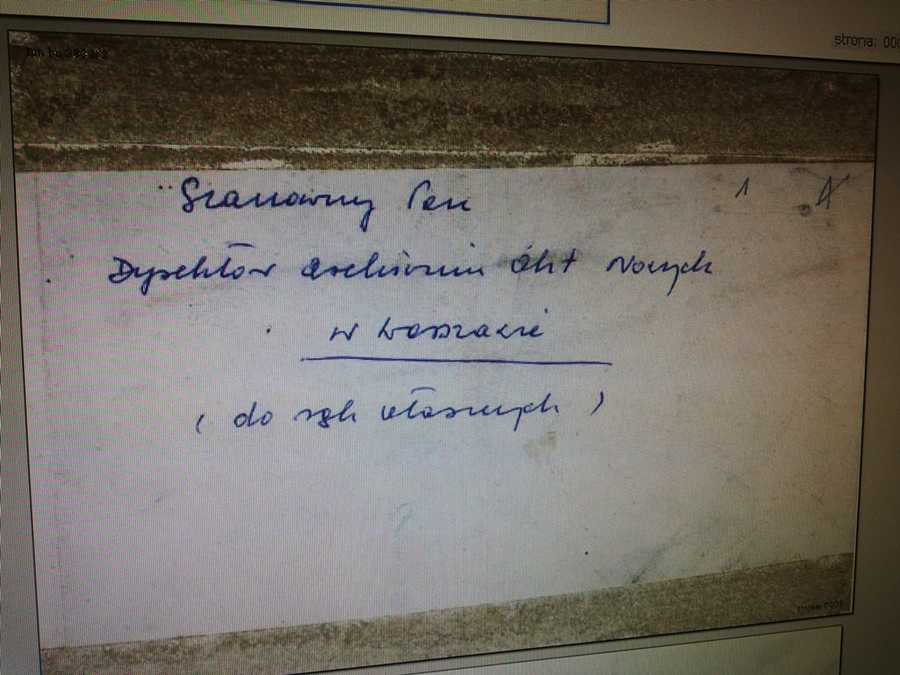 strona: 000
Szanowny Pan
1
Dyrektor Archiwum Akt Nowych
w Warszawie
( do rąk własnych )